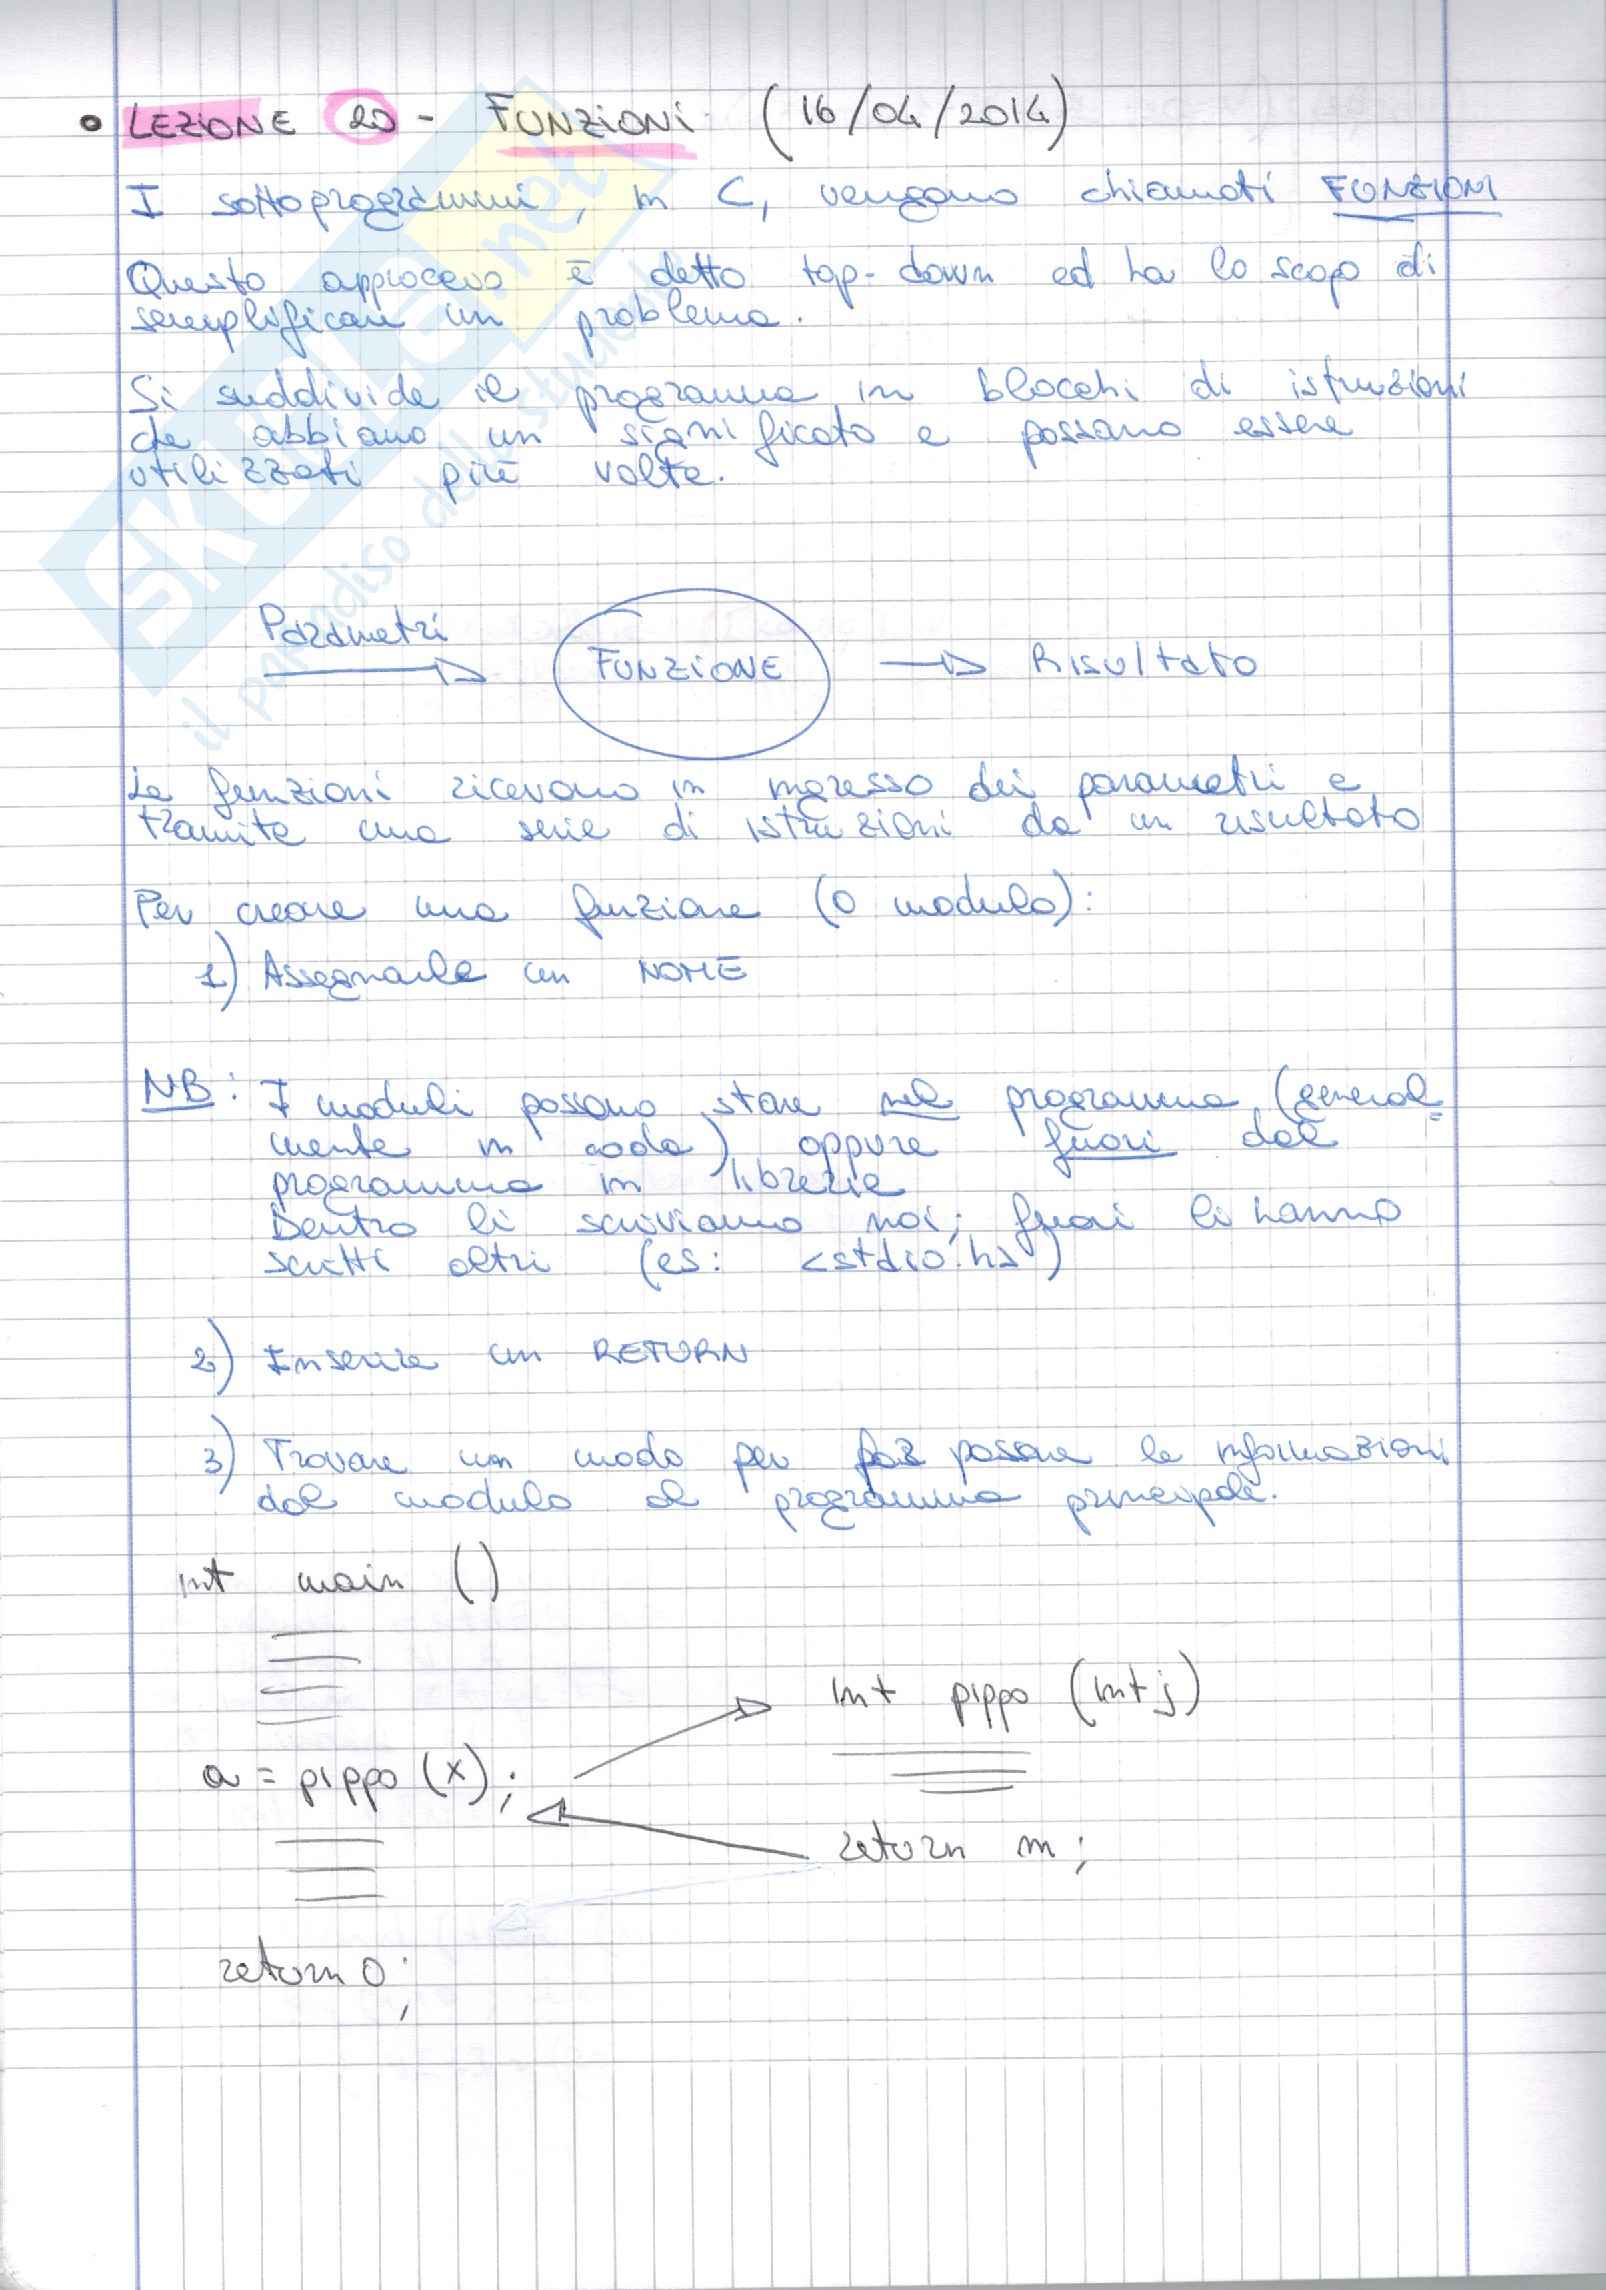 • LEZIONE 20 - FUNZIONI (16/04/2014)
I sottoprogrammi, in C, vengono chiamati FUNZIONI
Questo approccio è detto top-down ed ha lo scopo di
semplificare un problema.
Si suddivide il programma in blocchi di istruzioni
che abbiano un significato e possano essere
utilizzati più volte.
Parametri
FUNZIONE
Risultato
Le funzioni ricevono in ingresso dei parametri e
tramite una serie di istruzioni da un risultato
Per creare una funzione (o modulo):
1) Assegnarle un NOME
NB: I moduli possono stare nel programma (general=
mente in coda) oppure fuori dal
programma in librerie
Dentro li scriviamo noi; fuori li hanno
scritti altri (es: <stdio.h>)
2) Inserire un RETURN
3) Trovare un modo per far passare le informazioni
dal modulo al programma principale.
int main ()
int pippo (int j)
a = pippo (x);
return m;
return 0;
SKUOLA.net
il paradiso dello studente